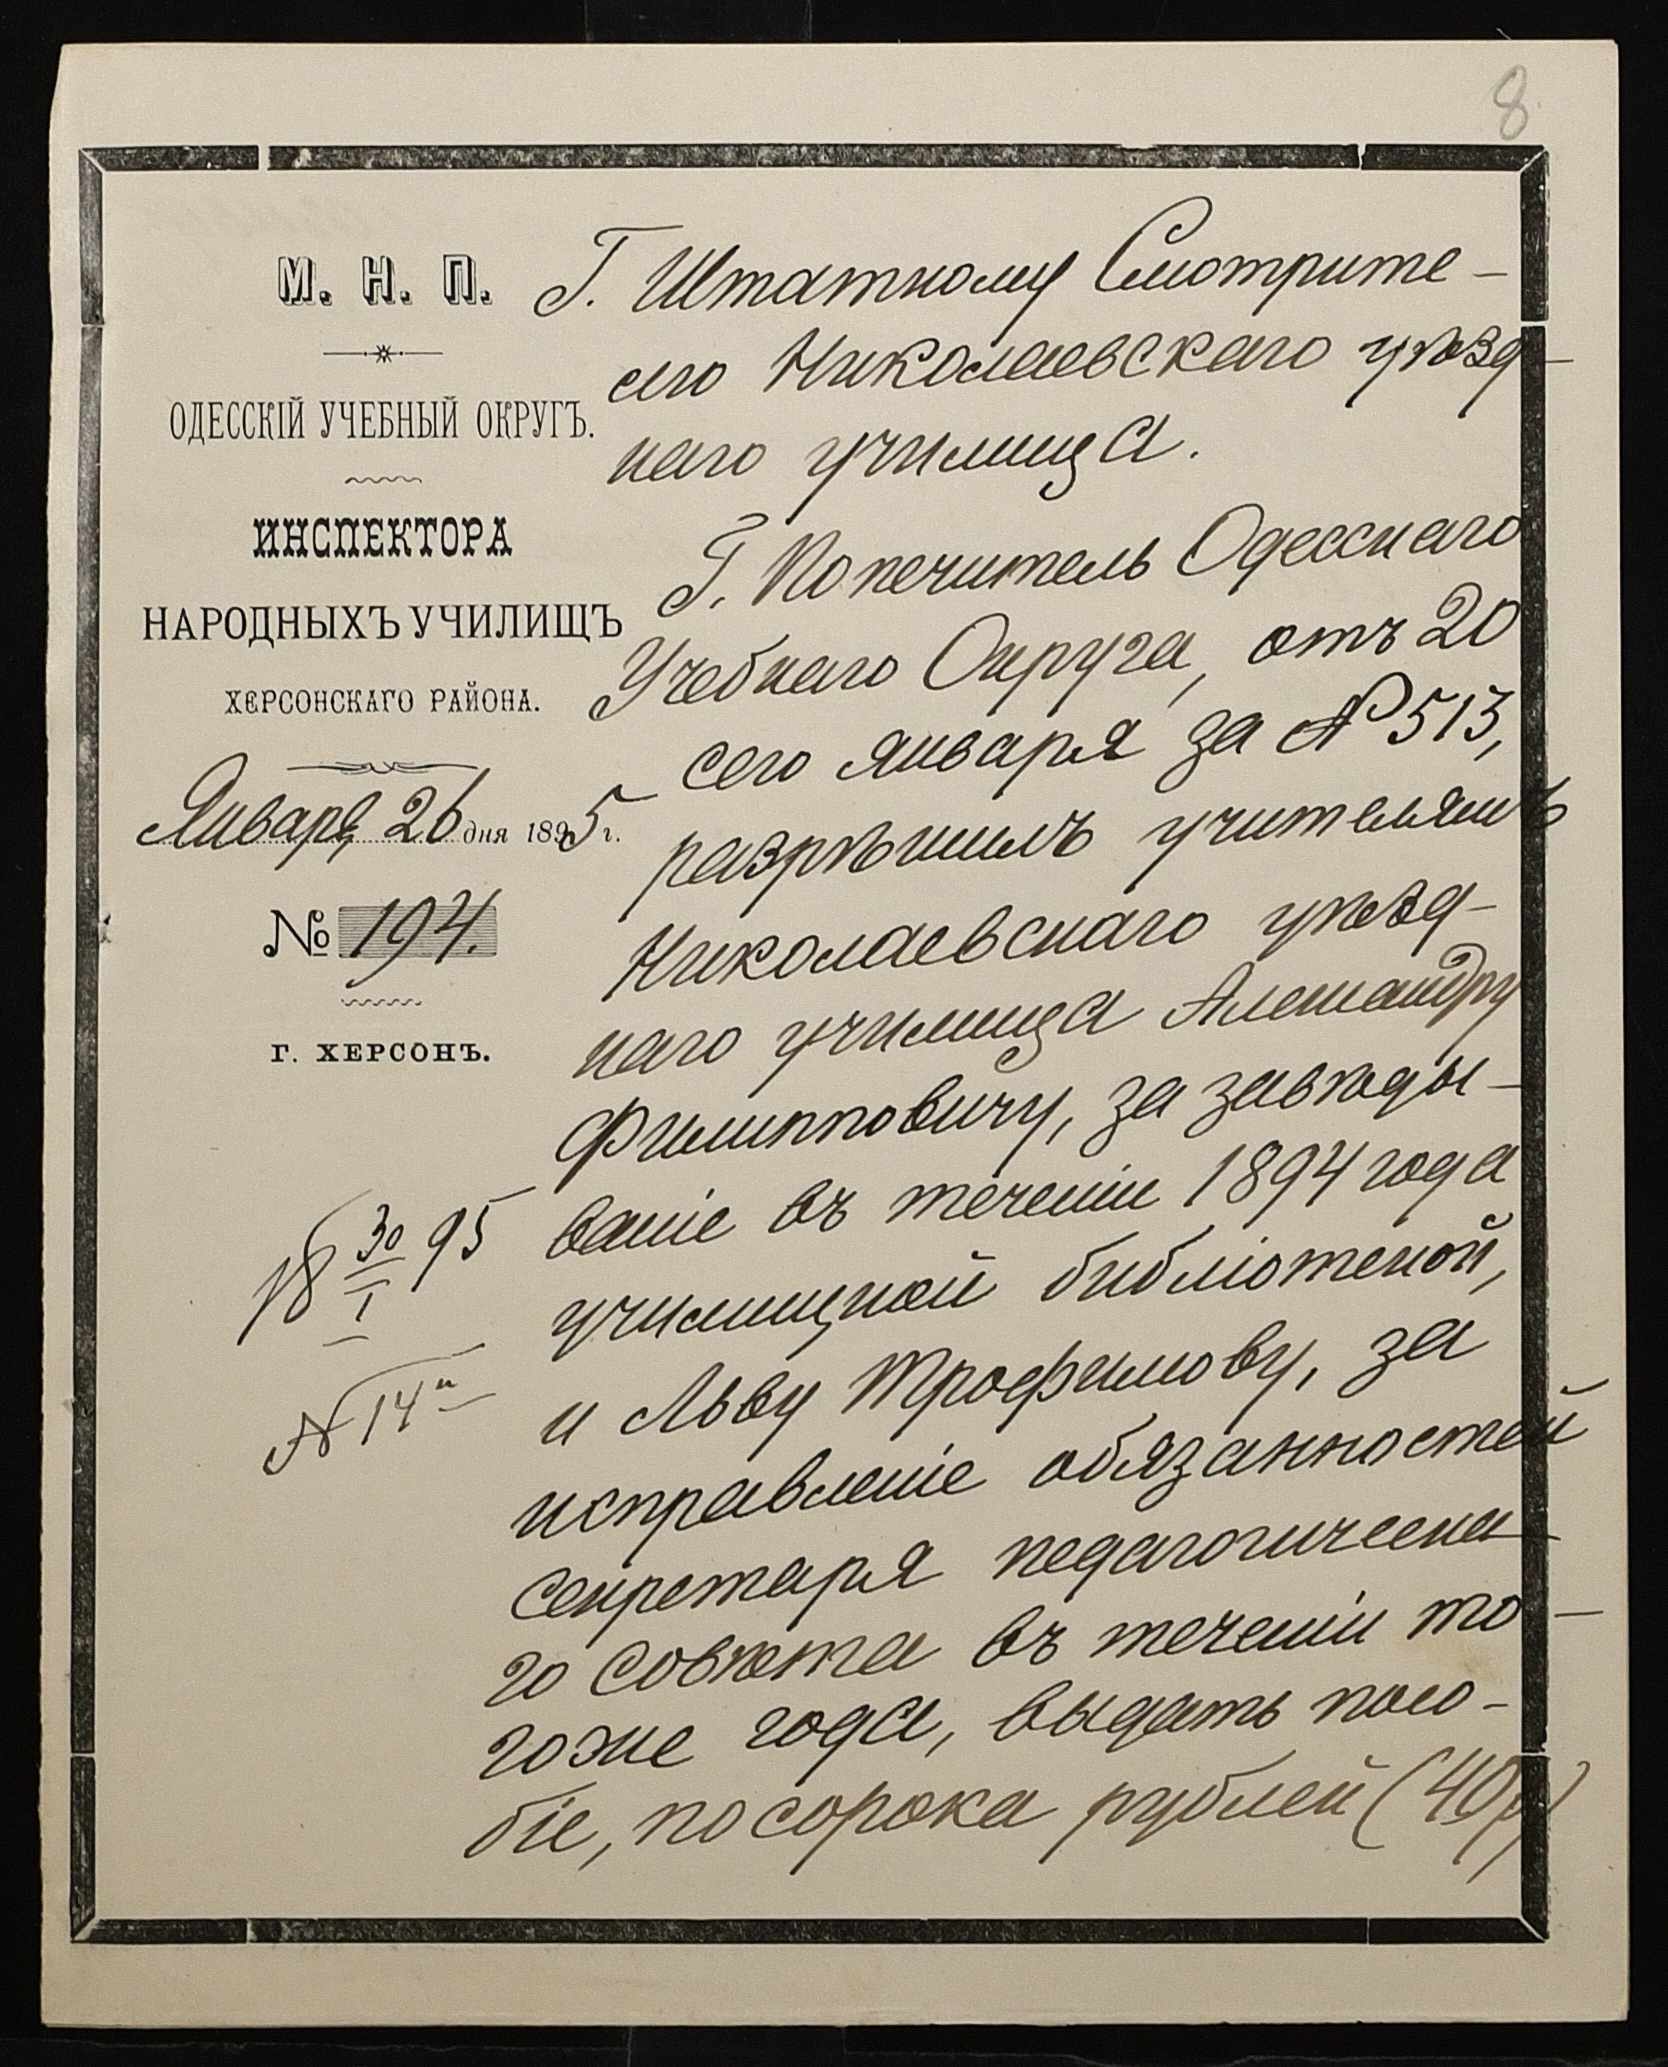 8
М. Н. П.
ОДЕССКІЙ УЧЕБНЫЙ ОКРУГЪ.
ИНСПЕКТОРА
НАРОДНЫХЪ УЧИЛИЩЪ
ХЕРСОНСКАГО РАЙОНА.
Января 26 дня 1895 г.
№ 194.
Г. ХЕРСОНЪ.
18 30/I 95
№ 14
Г. Штатному Смотрите-
лю Николаевскаго уѣзд-
наго училища.
Г. Попечитель Одесскаго
Учебнаго Округа, отъ 20
сего января за № 513,
разрѣшилъ учителямъ
Николаевскаго уѣзд-
наго училища Александру
Филипповичу, за завѣды-
ваніе въ теченіи 1894 года
училищной библіотекой,
и Льву Трофимову, за
исправленіе обязанностей
секретаря педагогическа-
го совѣта въ теченіи то-
гоже года, выдать посо-
біе, по сорока рублей (40 р)